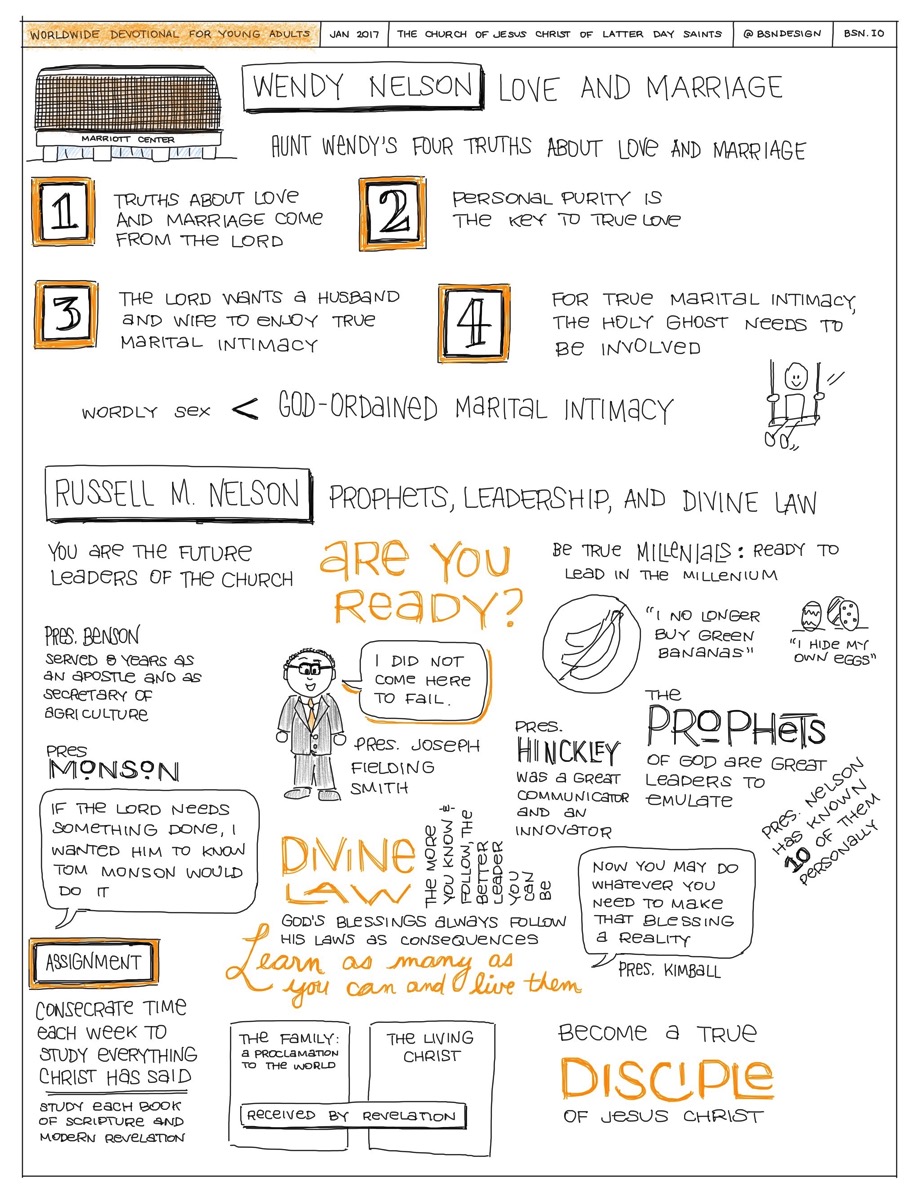 WORLDWIDE DEVOTIONAL FOR YOUNG ADULTS
JAN 2017
THE CHURCH OF JESUS CHRIST OF LATTER DAY SAINTS
@BSNDESIGN
BSN.IO
MARRIOTT CENTER
WENDY NELSON LOVE AND MARRIAGE
AUNT WENDY'S FOUR TRUTHS ABOUT LOVE AND MARRIAGE
1
TRUTHS ABOUT LOVE
AND MARRIAGE COME
FROM THE LORD
2
PERSONAL PURITY IS
THE KEY TO TRUE LOVE
3
THE LORD WANTS A HUSBAND
AND WIFE TO ENJOY TRUE
MARITAL INTIMACY
4
FOR TRUE MARITAL INTIMACY,
THE HOLY GHOST NEEDS TO
BE INVOLVED
WORDLY SEX < GOD-ORDAINED MARITAL INTIMACY
RUSSELL M. NELSON PROPHETS, LEADERSHIP, AND DIVINE LAW
YOU ARE THE FUTURE
LEADERS OF THE CHURCH
ARE YOU
READY?
BE TRUE MILLENIALS: READY TO
LEAD IN THE MILLENIUM
"I NO LONGER
BUY GREEN
BANANAS"
"I HIDE MY
OWN EGGS"
PRES. BENSON
SERVED 8 YEARS AS
AN APOSTLE AND AS
SECRETARY OF
AGRICULTURE
I DID NOT
COME HERE
TO FAIL.
PRES. JOSEPH
FIELDING
SMITH
PRES.
HINCKLEY
WAS A GREAT
COMMUNICATOR
AND AN
INNOVATOR
THE
PROPHETS
OF GOD ARE GREAT
LEADERS TO
EMULATE
PRES. NELSON
HAS KNOWN
10 OF THEM
PERSONALLY
PRES
MONSON
IF THE LORD NEEDS
SOMETHING DONE, I
WANTED HIM TO KNOW
TOM MONSON WOULD
DO IT
DIVINE
LAW
THE MORE
YOU KNOW &
FOLLOW, THE
BETTER
LEADER
YOU
CAN
BE
GOD'S BLESSINGS ALWAYS FOLLOW
HIS LAWS AS CONSEQUENCES
Learn as many as
you can and live them
NOW YOU MAY DO
WHATEVER YOU
NEED TO MAKE
THAT BLESSING
A REALITY
PRES. KIMBALL
ASSIGNMENT
CONSECRATE TIME
EACH WEEK TO
STUDY EVERYTHING
CHRIST HAS SAID
STUDY EACH BOOK
OF SCRIPTURE AND
MODERN REVELATION
THE FAMILY:
A PROCLAMATION
TO THE WORLD
THE LIVING
CHRIST
RECEIVED BY REVELATION
BECOME A TRUE
DISCIPLE
OF JESUS CHRIST